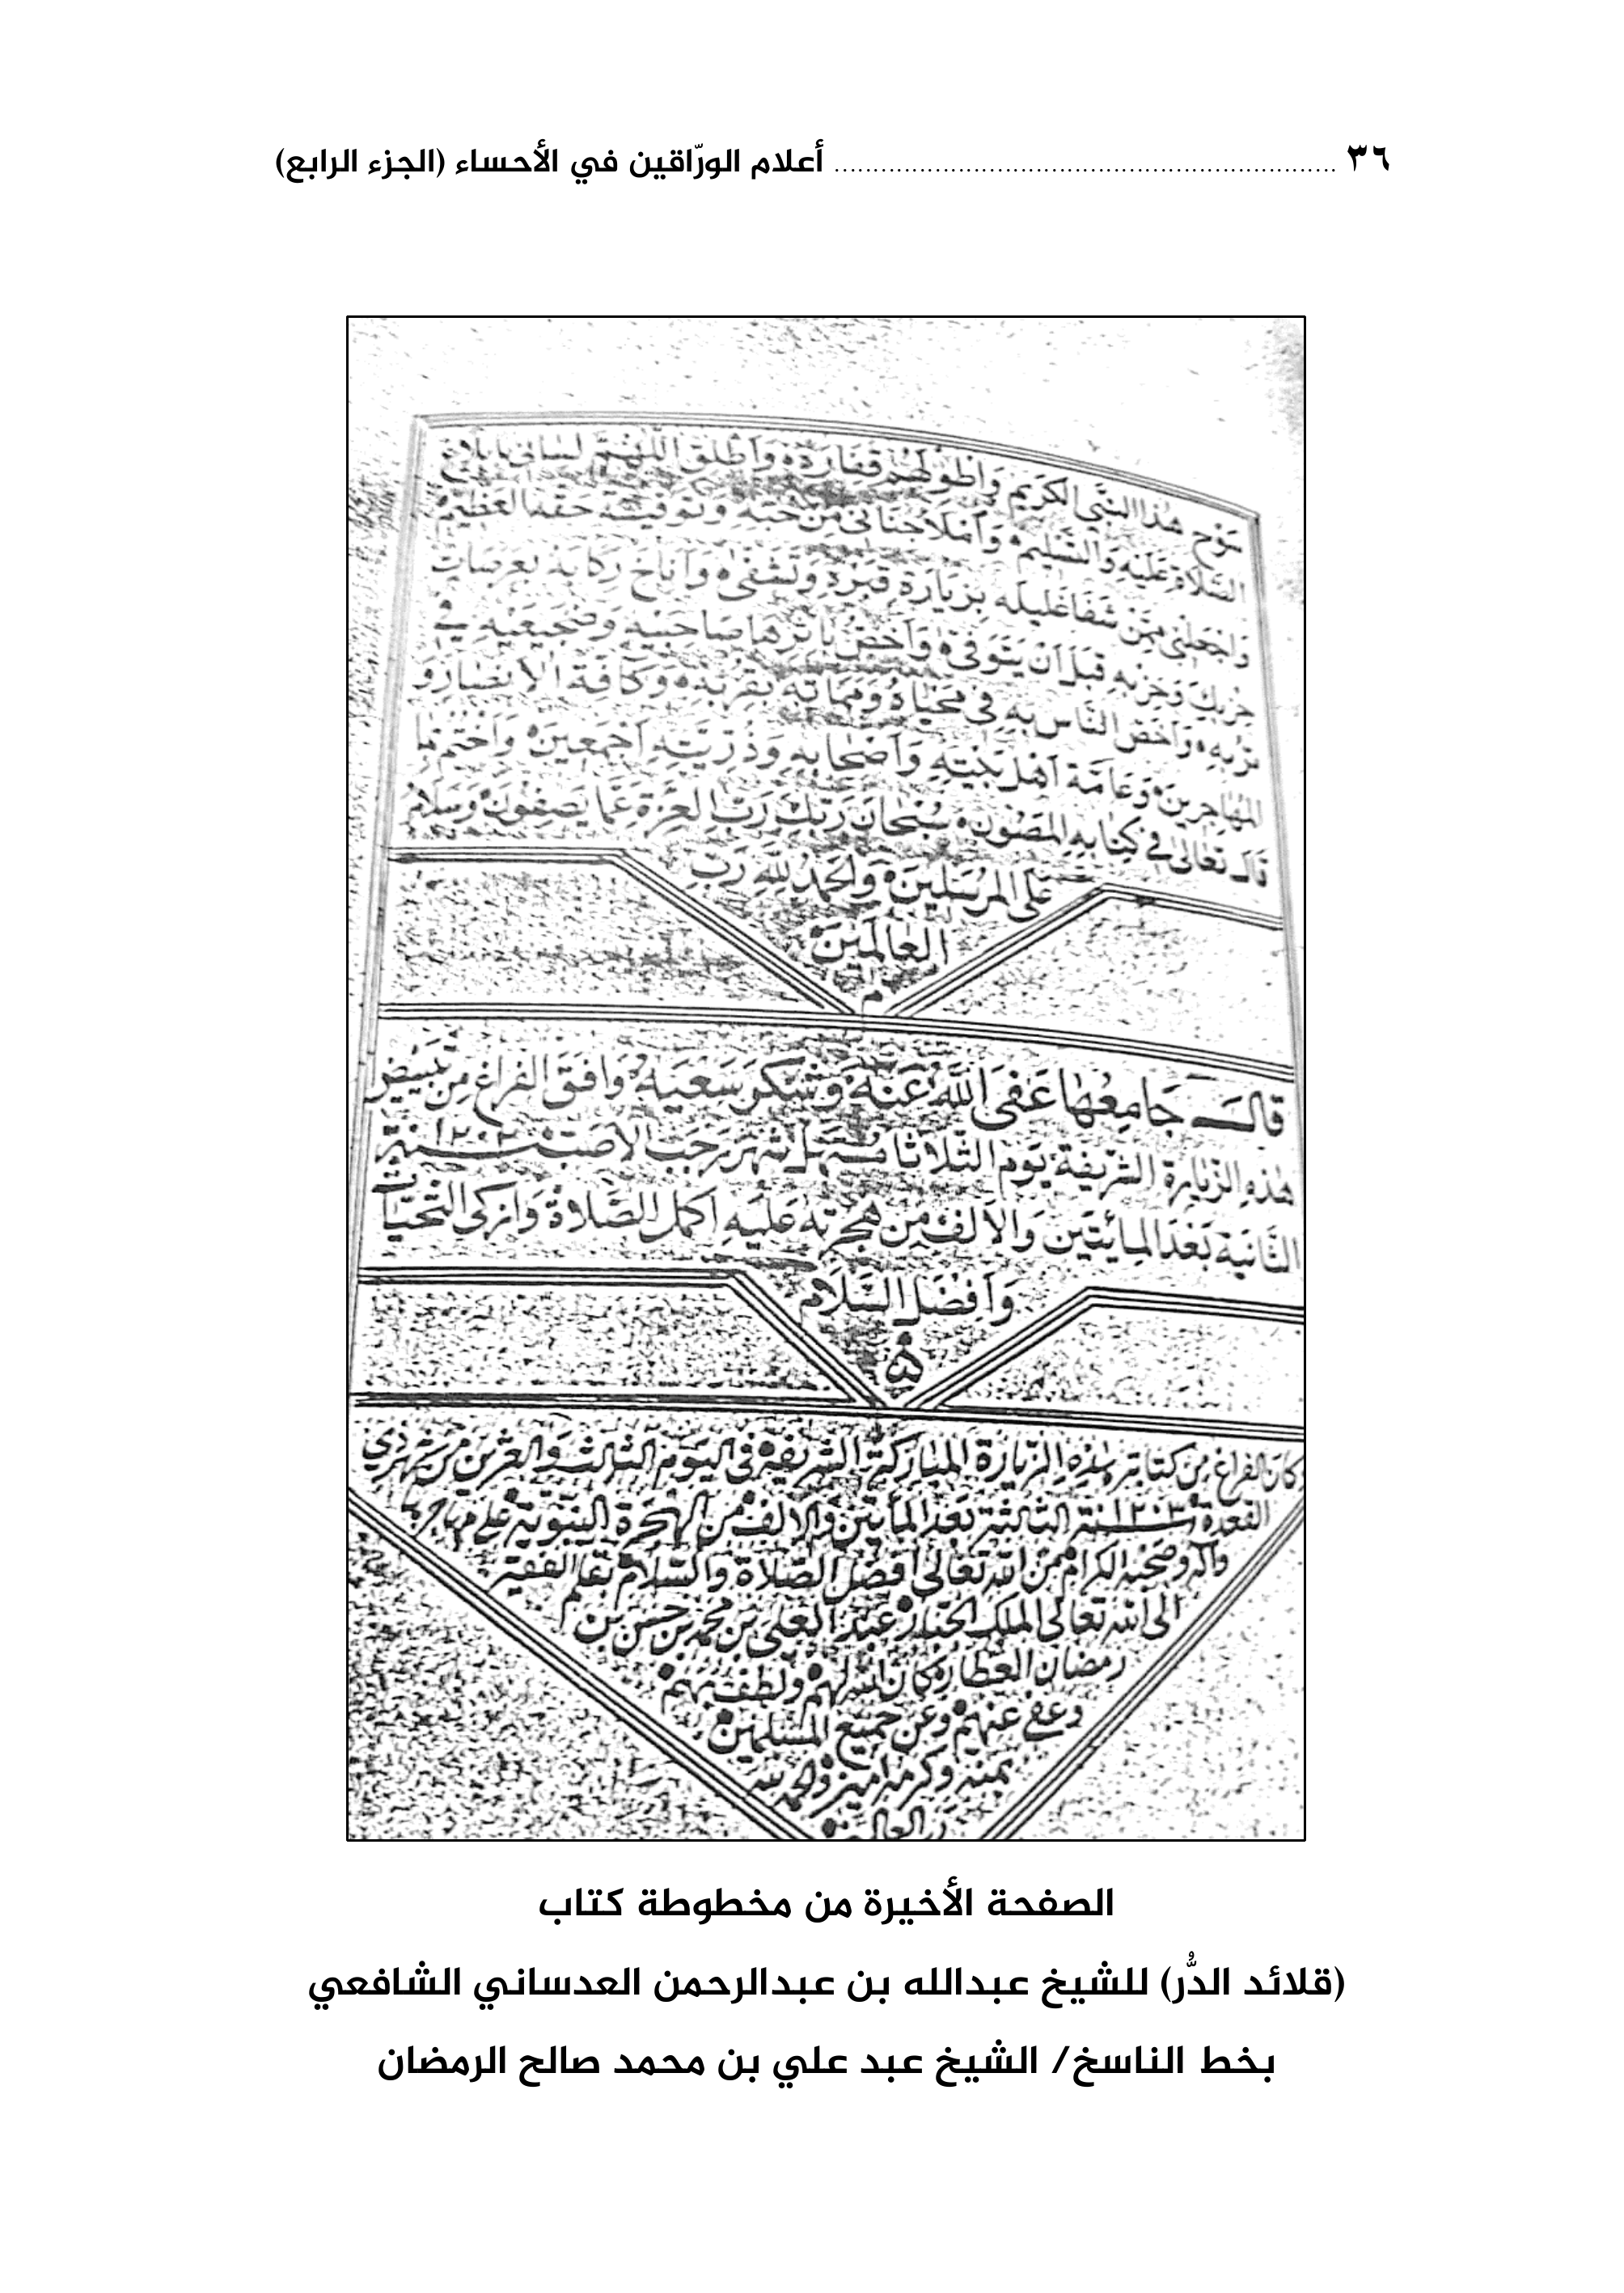 ٣٦ ........ أعلام الورّاقين في الأحساء (الجزء الرابع)
هذا النبي الكريم واطو لهم قفاره وأطلق اللهم لساني بابلاغ
الصلاة عليه والتسليم واملأ جناني من حبه وتوفية حقه العظيم
واجعلني ممن شفا غليله بزيارة قبره وتشفى واناخ ركابه بعرصات
وحزبه قبل ان يتوفى واخص صاحبيه وضجيعيه في
تربه واخص الناس به في محياه ومماته بقربه وكافة الانصار و
المهاجرين وعامة اهل بيته واصحابه وذريته اجمعين واختم بما
قال تعالى في كتابه المصون سبحان ربك رب العزة عما يصفون وسلام
على المرسلين والحمد لله رب
العالمين
م
قال جامعها عفى الله عنه وشكر سعيه وافق الفراغ من تبييض
هذه الزيارة الشريفة يوم الثلاثا شهر رجب الاصب سنة ١٢٠٢
الثانية بعد المائتين والالف من هجرته عليه اكمل الصلاة وازكى التحيات
وافضل السلام
وكان الفراغ من كتابة هذه الزيارة المباركة الشريفة في اليوم الثالث والعشرين من شهر ذي
القعدة سنة ١٢٠٣ الثالثة بعد المايتين والالف من الهجرة النبوية على مهاجرها
واله وصحبه الكرام من الله تعالى افضل الصلاة والسلام بقلم الفقير
الى الله تعالى الملك عبد العلي بن محمد بن حسن بن
رمضان العطار كان الله لهم ولطف بهم
وعفى عنهم وعن جميع المسلمين
بمنه وكرمه امين والحمد لله
رب العالمين
الصفحة الأخيرة من مخطوطة كتاب
(قلائد الدُّر) للشيخ عبدالله بن عبدالرحمن العدساني الشافعي
بخط الناسخ/ الشيخ عبد علي بن محمد صالح الرمضان